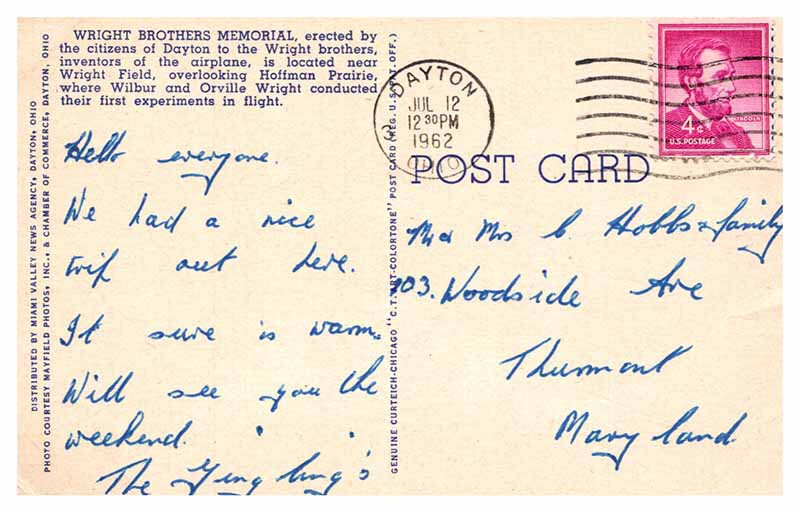 WRIGHT BROTHERS MEMORIAL, erected by
the citizens of Dayton to the Wright brothers,
inventors of the airplane, is located near
Wright Field, overlooking Hoffman Prairie,
where Wilbur and Orville Wright conducted
their first experiments in flight.
Hello everyone.
We had a nice
trip out here.
It sure is warm.
Will see you the
weekend.
The Gingling's
DISTRIBUTED BY MIAMI VALLEY NEWS AGENCY, DAYTON, OHIO
PHOTO COURTESY MAYFIELD PHOTOS, INC., & CHAMBER OF COMMERCE, DAYTON, OHIO
GENUINE CURTEICH-CHICAGO "C.T. ART-COLORTONE" POST CARD (REG. U.S. PAT. OFF.)
DAYTON
JUL 12
12 30PM
1962
OHIO
3
LINCOLN
4¢
U.S. POSTAGE
POST CARD
Mr & Mrs C. Hobbs & family
103. Woodside Ave
Thurmont
Maryland